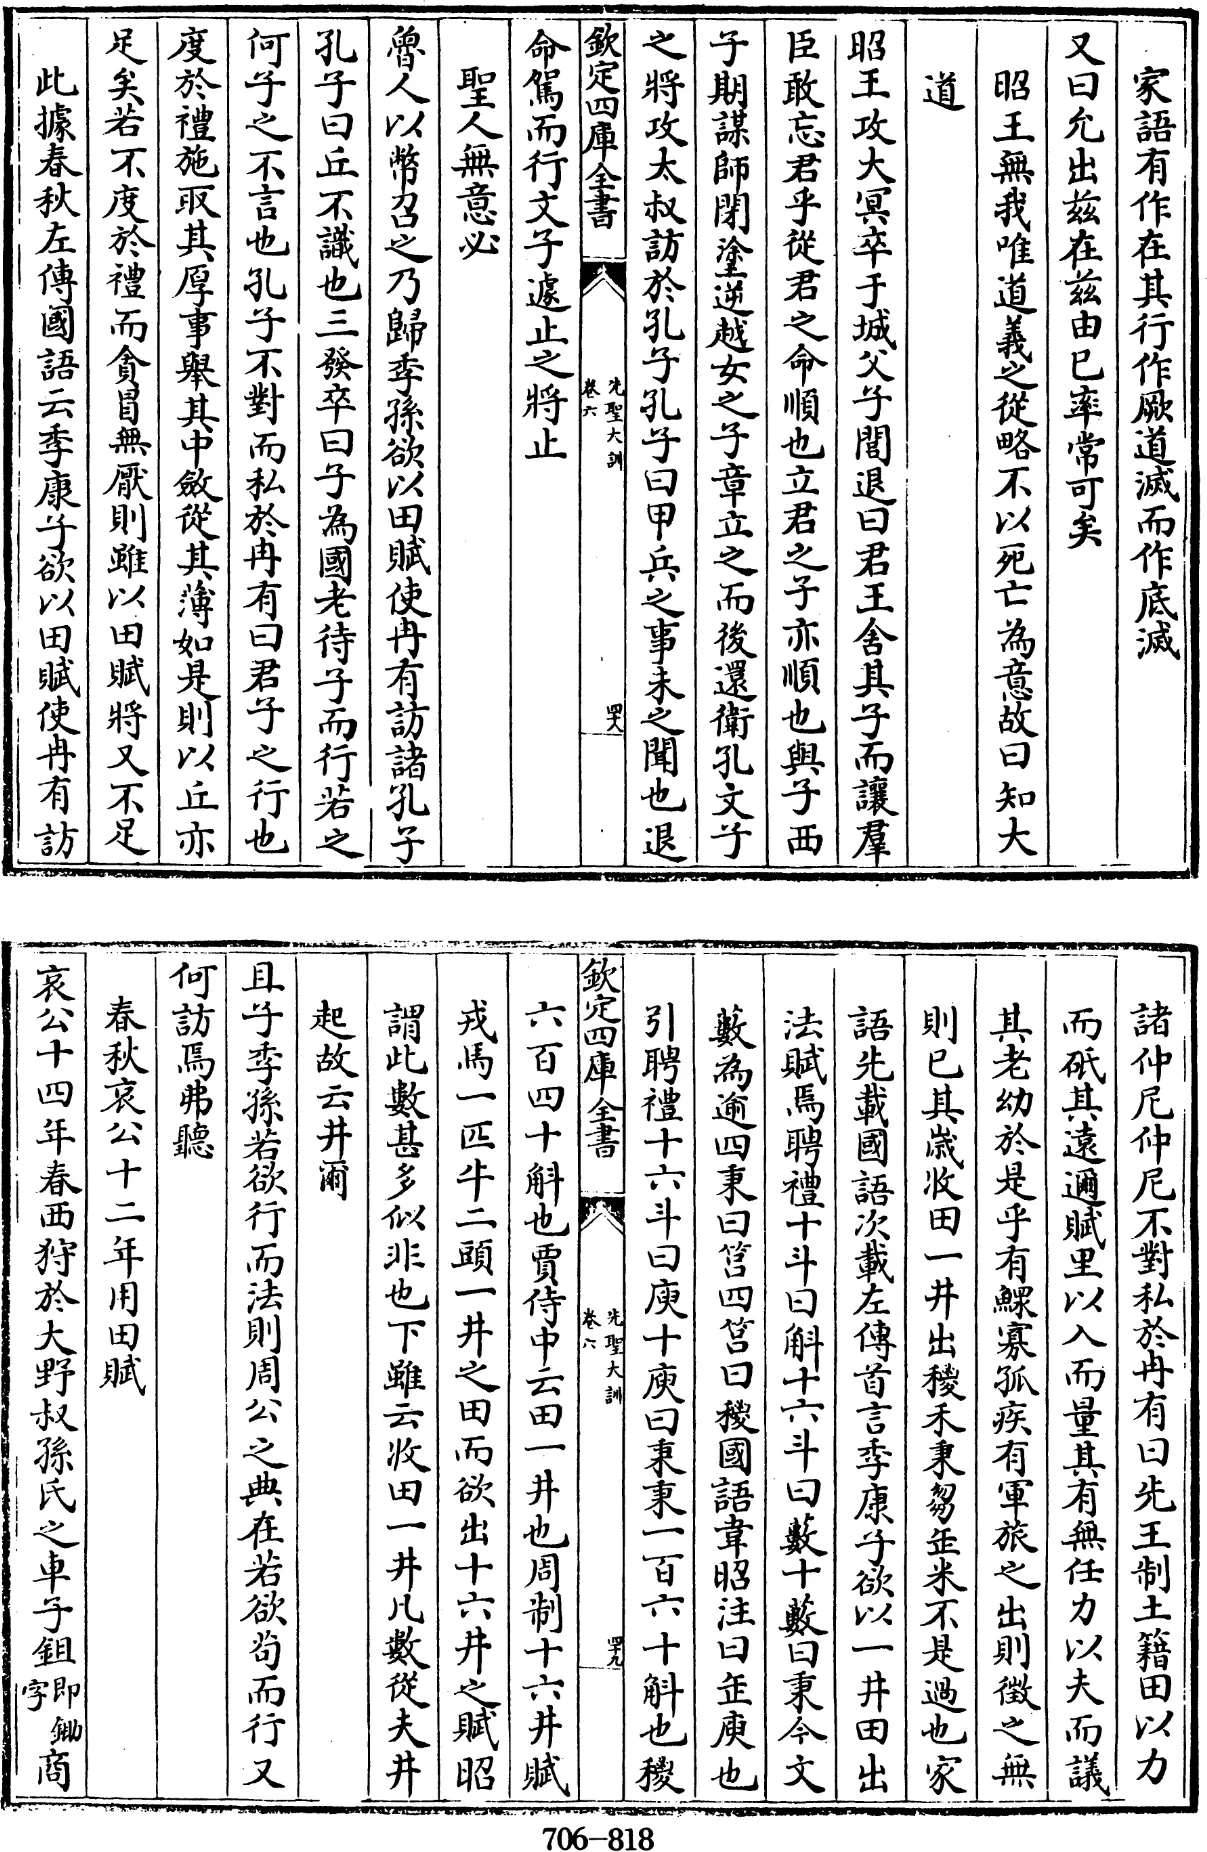 家語有作在其行作厥道滅而作底滅
又曰允出兹在兹由已率常可矣
昭王無我唯道義之從略不以死亡為意故曰知大
道
昭王攻大冥卒于城父子閭退曰君王舍其子而讓羣
臣敢忘君乎從君之命順也立君之子亦順也與子西
子期謀師閉塗逆越女之子章立之而後還衛孔文子
之將攻太叔訪於孔子孔子曰甲兵之事未之聞也退
欽定四庫全書
先聖大訓
卷六
四八
命駕而行文子遽止之將止
聖人無意必
魯人以幣召之乃歸季孫欲以田賦使冉有訪諸孔子
孔子曰丘不識也三發卒曰子為國老待子而行若之
何子之不言也孔子不對而私於冉有曰君子之行也
度於禮施取其厚事舉其中斂從其薄如是則以丘亦
足矣若不度於禮而貪冒無厭則雖以田賦將又不足
此據春秋左傳國語云季康子欲以田賦使冉有訪
諸仲尼仲尼不對私於冉有曰先王制土籍田以力
而砥其遠邇賦里以入而量其有無任力以夫而議
其老幼於是乎有鰥寡孤疾有軍旅之出則徵之無
則已其嵗收田一井出稯禾秉芻缶米不是過也家
語先載國語次載左傳首言季康子欲以一井田出
法賦焉聘禮十斗曰斛十六斗曰藪十藪曰秉今文
藪為逾四秉曰筥四筥曰稯國語韋昭注曰缶庾也
引聘禮十六斗曰庾十庾曰秉秉一百六十斛也稯
欽定四庫全書
先聖大訓
卷六
四十九
六百四十斛也賈侍中云田一井也周制十六井賦
戎馬一匹牛二頭一井之田而欲出十六井之賦昭
謂此數甚多似非也下雖云收田一井凡數從夫井
起故云井爾
且子季孫若欲行而法則周公之典在若欲茍而行又
何訪焉弗聽
春秋哀公十二年用田賦
哀公十四年春西狩於大野叔孫氏之車子鉏即鋤字商
706-818